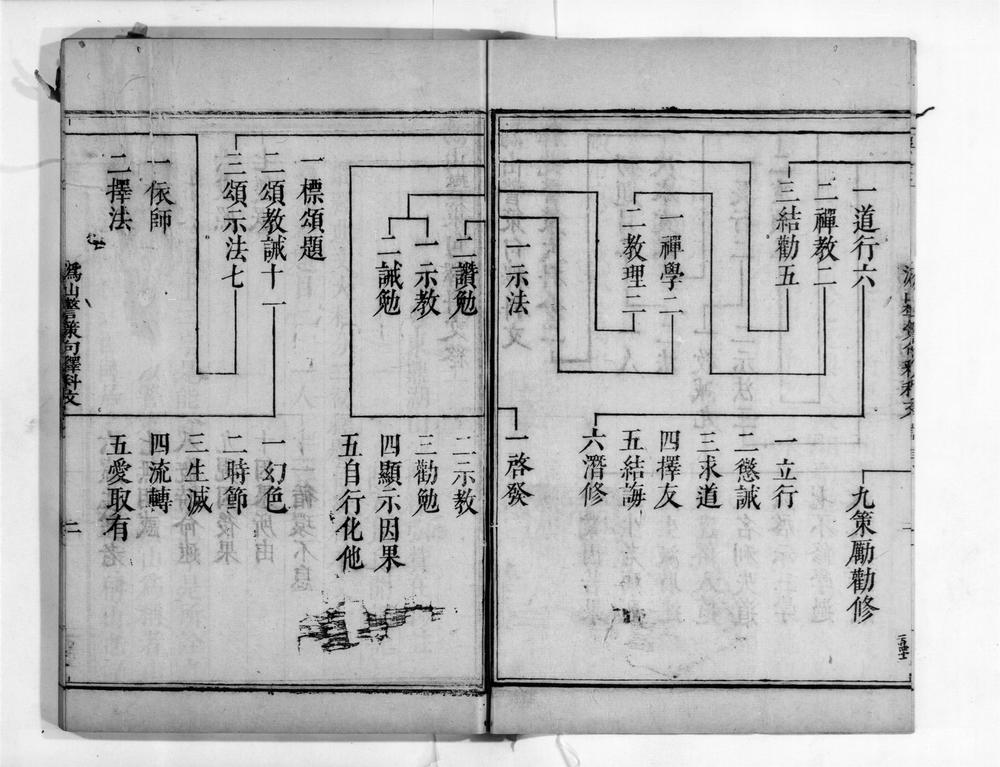 九策勵勸修
一道行六
二禪教二
三結勸五
一立行
二懲誡
三求道
四擇友
五結誨
六潛修
一禪學二
二教理二
一示法
二讚勉
一示教
二誡勉
一啓發
二示教
三勸勉
四顯示因果
五自行化他
一標頌題
二頌教誡十一
三頌示法七
一幻色
二時節
三生滅
四流轉
五愛取有
一依師
二擇法
溈山警策句釋科文
二